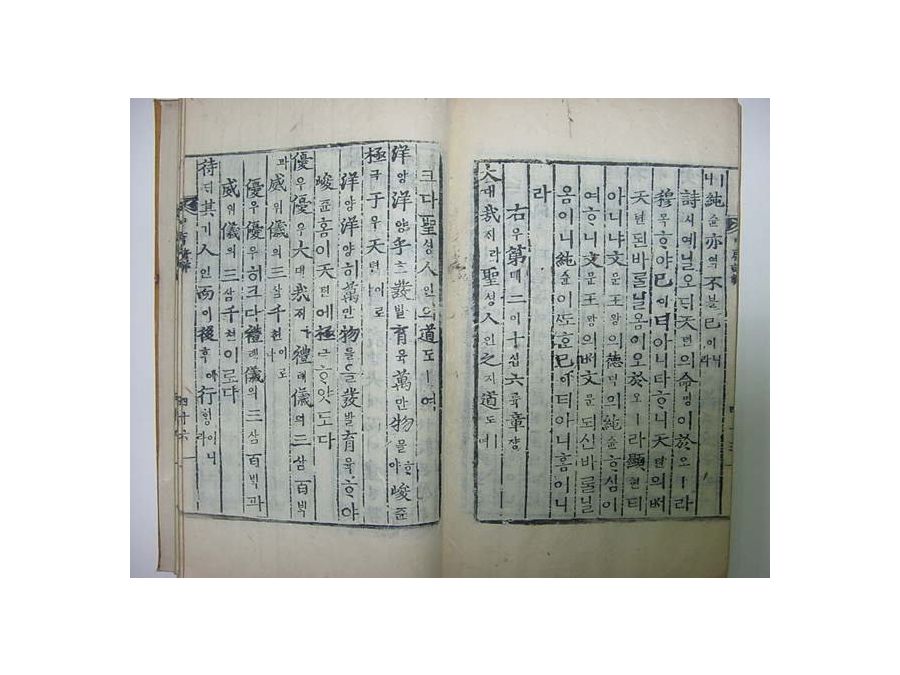 니純슌亦역不블已이니라
詩시예닐오ᄃᆡ天텬의命명이於오ㅣ라
穆목ᄒᆞ야已이티아니타ᄒᆞ니天텬의ᄡᅥ
天텬된바ᄅᆞᆯ닐옴이오於오ㅣ라顯현티
아니냐文문王왕의德덕의純슌ᄒᆞ심이
여ᄒᆞ니文문王왕의ᄡᅥ文문되신바ᄅᆞᆯ닐
옴이니純슌이ᄯᅩᄒᆞᆫ已이티아니홈이니
라
右우第뎨二이十십六륙章쟝
大대哉ᄌᆡ라聖셩人인之지道도여
크다聖셩人인의道도ㅣ여
洋양洋양乎호發발育육萬만物믈ᄒᆞ야峻쥰
極극于우天텬이로다
洋양洋양히萬만物믈을發발育육ᄒᆞ야
峻쥰홈이天텬에極극ᄒᆞ얏도다
優우優우大대哉ᄌᆡ라禮례儀의三삼百ᄇᆡᆨ
과威위儀의三삼千쳔이로다
優우優우히크다禮례儀의三삼百ᄇᆡᆨ과
威위儀의三삼千쳔이로다
待ᄃᆡ其기人인而이後후에行ᄒᆡᆼ이니라